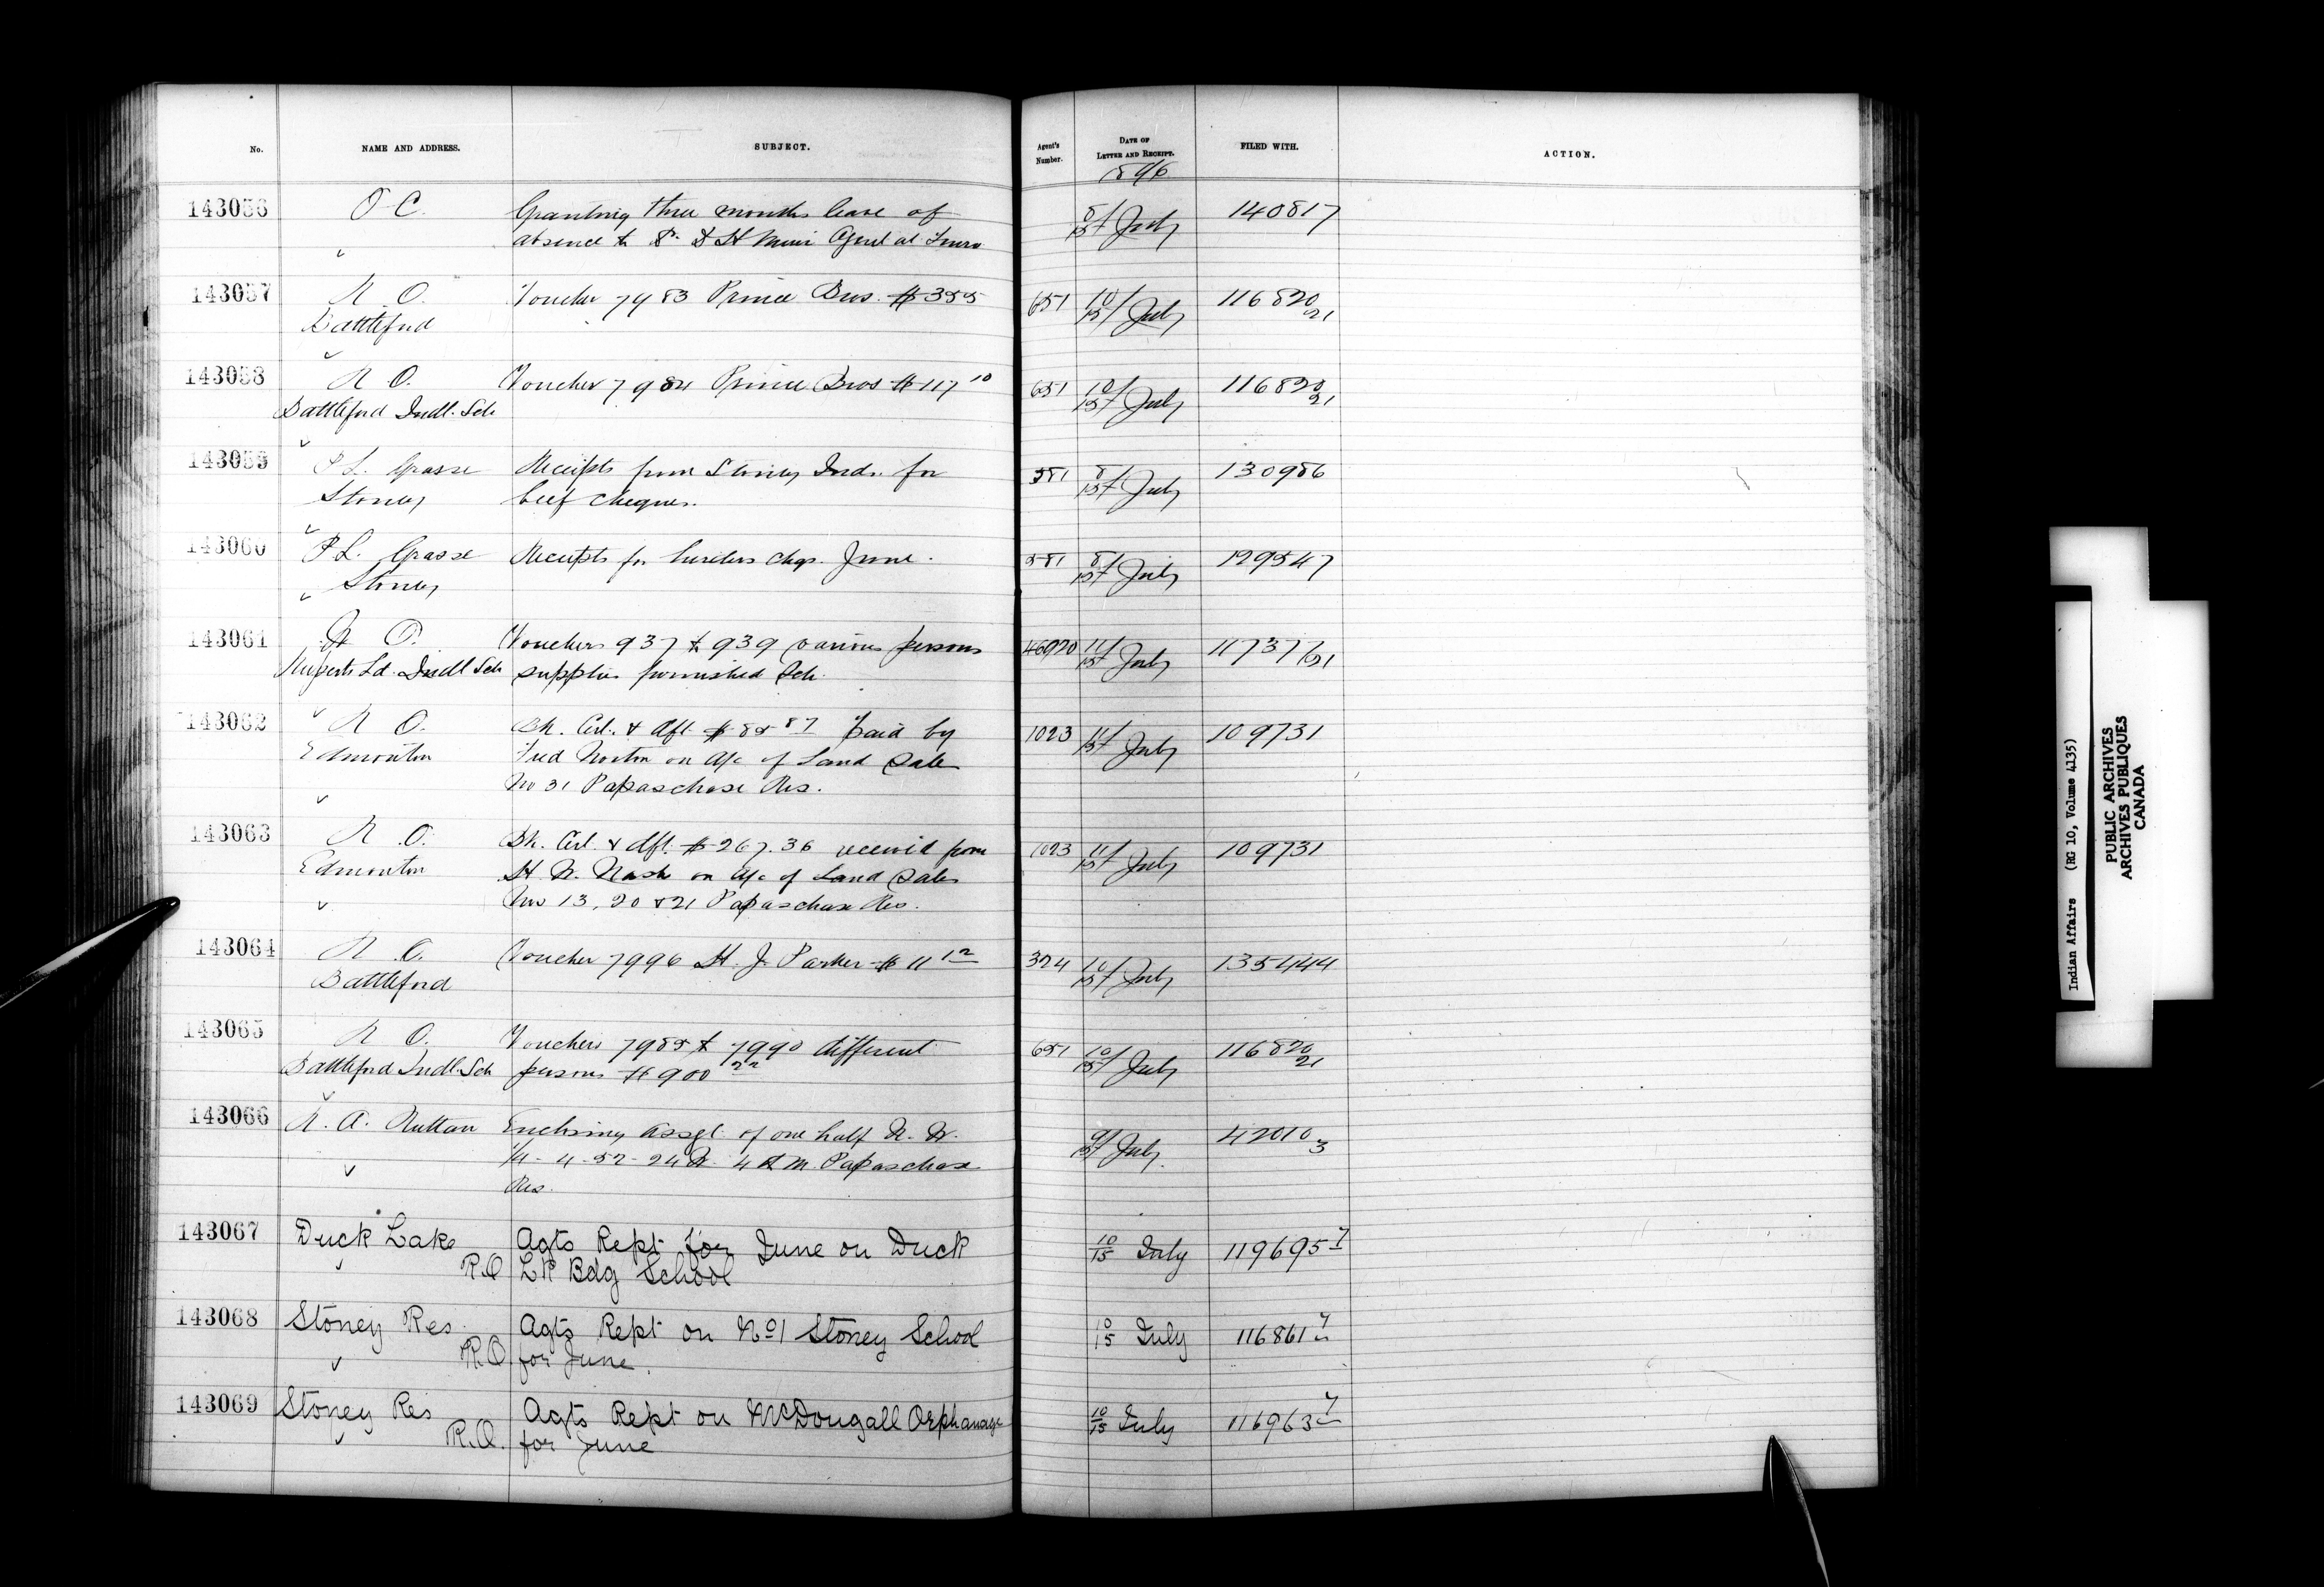 No. NAME AND ADDRESS. SUBJECT. Agent's Number. DATE OF LETTER AND RECEIPT. FILED WITH. ACTION.
1896
143056 O C. Granting three months leave of 8/15 July 140817
absence to Dr. D H Muir Agent at Truro
143057 R O. Voucher 7983 Prince Bros. $355 651 10/15 July 116820 21
Battleford
143058 R O. Voucher 7984 Prince Bros $117 10 651 10/15 July 116820 21
Battleford Indl. Sch
143059 P L. Grasse Receipts from Stoney Inds. for 581 8/15 July 130986
Stoney beef cheques.
143060 P L. Grasse Receipts for chqs. June. 581 8/15 July 129547
Stoney
143061 R O. Vouchers 937 to 939 various persons 46920 11/15 July 11737 /21
Ruperts Ld. Indl Sch supplies furnished Sch.
143062 R O. Bk. Cert. & dft $85 87 paid by 1023 11/15 July 109731
Edmonton Fred Norton on a/c of Land Sale
No 31 Papaschase Res.
143063 R O. Bk. Cert. & dft. $267.36 received from 1023 11/15 July 109731
Edmonton H. W. Nash on a/c of Land Sales
Nos 13, 20 & 21 Papaschase Res.
143064 R O. Voucher 7996 H. J. Parker $11 12 324 10/15 July 135444
Battleford
143065 R O. Vouchers 7985 to 7990 different 651 10/15 July 116820 21
Battleford Indl. Sch persons $900 22
143066 R. A. Ruttan Enclosing assgt. of one half N. W. 9/15 July 42010 3
1/4 - 4 - 52 - 24 W. 4th M. Papaschase
Res.
143067 Duck Lake Agts Rept for June on Duck 10/15 July 119695 7
R.O Lk Bdg School
143068 Stoney Res. Agts Rept on No 1 Stoney School 10/15 July 116861 7
R.O. for June.
143069 Stoney Res Agts Rept on McDougall Orphanage 10/15 July 116963 7
R.O. for June
Indian Affairs (RG 10, Volume 4135)
PUBLIC ARCHIVES
ARCHIVES PUBLIQUES
CANADA